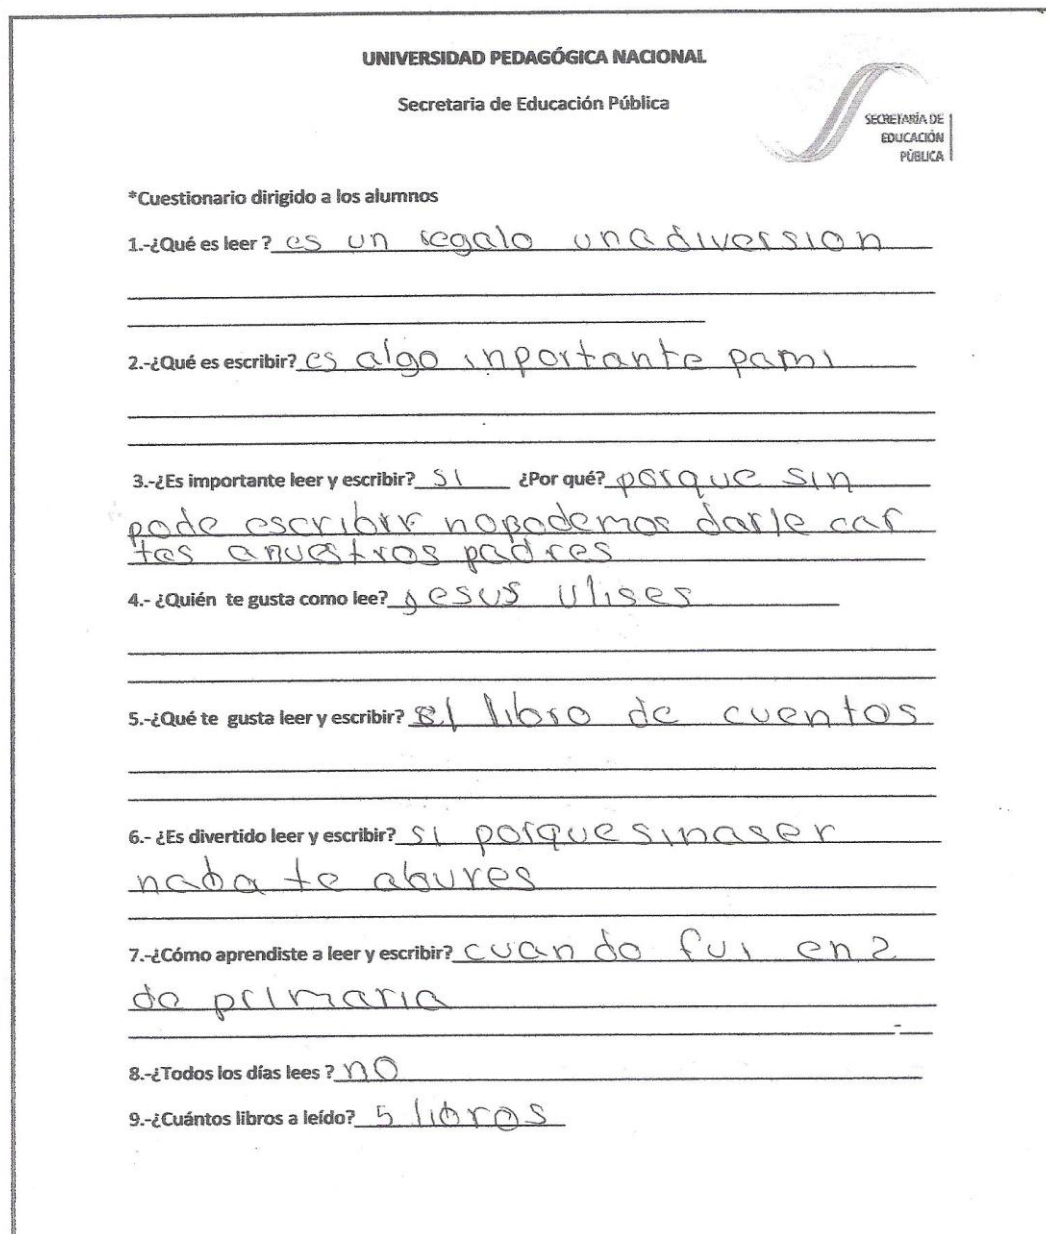 UNIVERSIDAD PEDAGÓGICA NACIONAL
Secretaria de Educación Pública
SECRETARÍA DE
EDUCACIÓN
PÚBLICA
*Cuestionario dirigido a los alumnos
1.-¿Qué es leer ? es un regalo una diversion
2.-¿Qué es escribir? es algo inportante pami
3.-¿Es importante leer y escribir? si ¿Por qué? porque sin
pode escribir nopodemos darle car
tas anuestros padres
4.- ¿Quién te gusta como lee? jesus Ulises
5.-¿Qué te gusta leer y escribir? el libro de cuentos
6.- ¿Es divertido leer y escribir? si porque sinaser
nada te abures
7.-¿Cómo aprendiste a leer y escribir? cuando fui en 2
da primaria
8.-¿Todos los días lees ? no
9.-¿Cuántos libros a leído? 5 libros